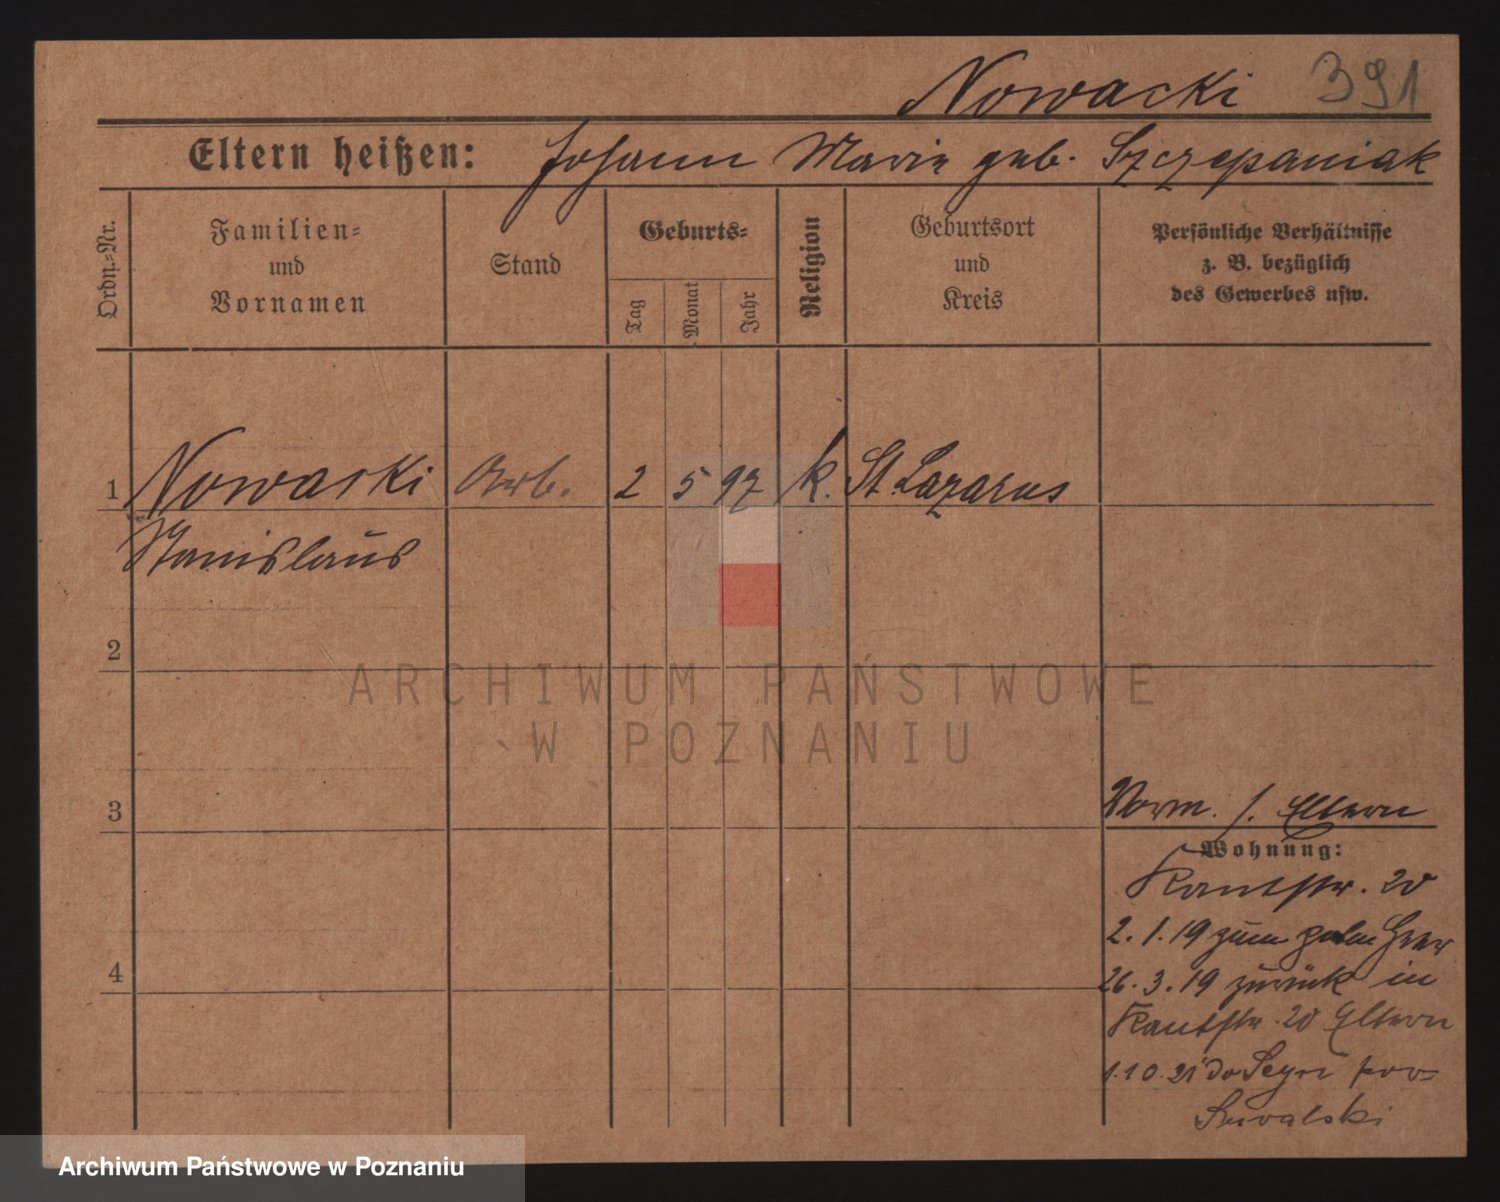 Nowacki 391
Eltern heißen: Johann Marie geb. Szczepaniak
Ordn.-Nr.
Familien-
und
Vornamen
Stand
Geburts-
Tag
Monat
Jahr
Religion
Geburtsort
und
Kreis
Persönliche Verhältnisse
z. B. bezüglich
des Gewerbes usw.
1 Nowacki Arb. 2 5 97 k. St. Lazarus
Stanislaus
2
3
4
Vorm. s. Eltern
Wohnung:
Kantstr. 20
2.1.19 zum poln Heer
26.3.19 zurück in
Kantstr. 20 Eltern
1.10.21 do pow-
Suwalski
ARCHIWUM PAŃSTWOWE
W POZNANIU
Archiwum Państwowe w Poznaniu